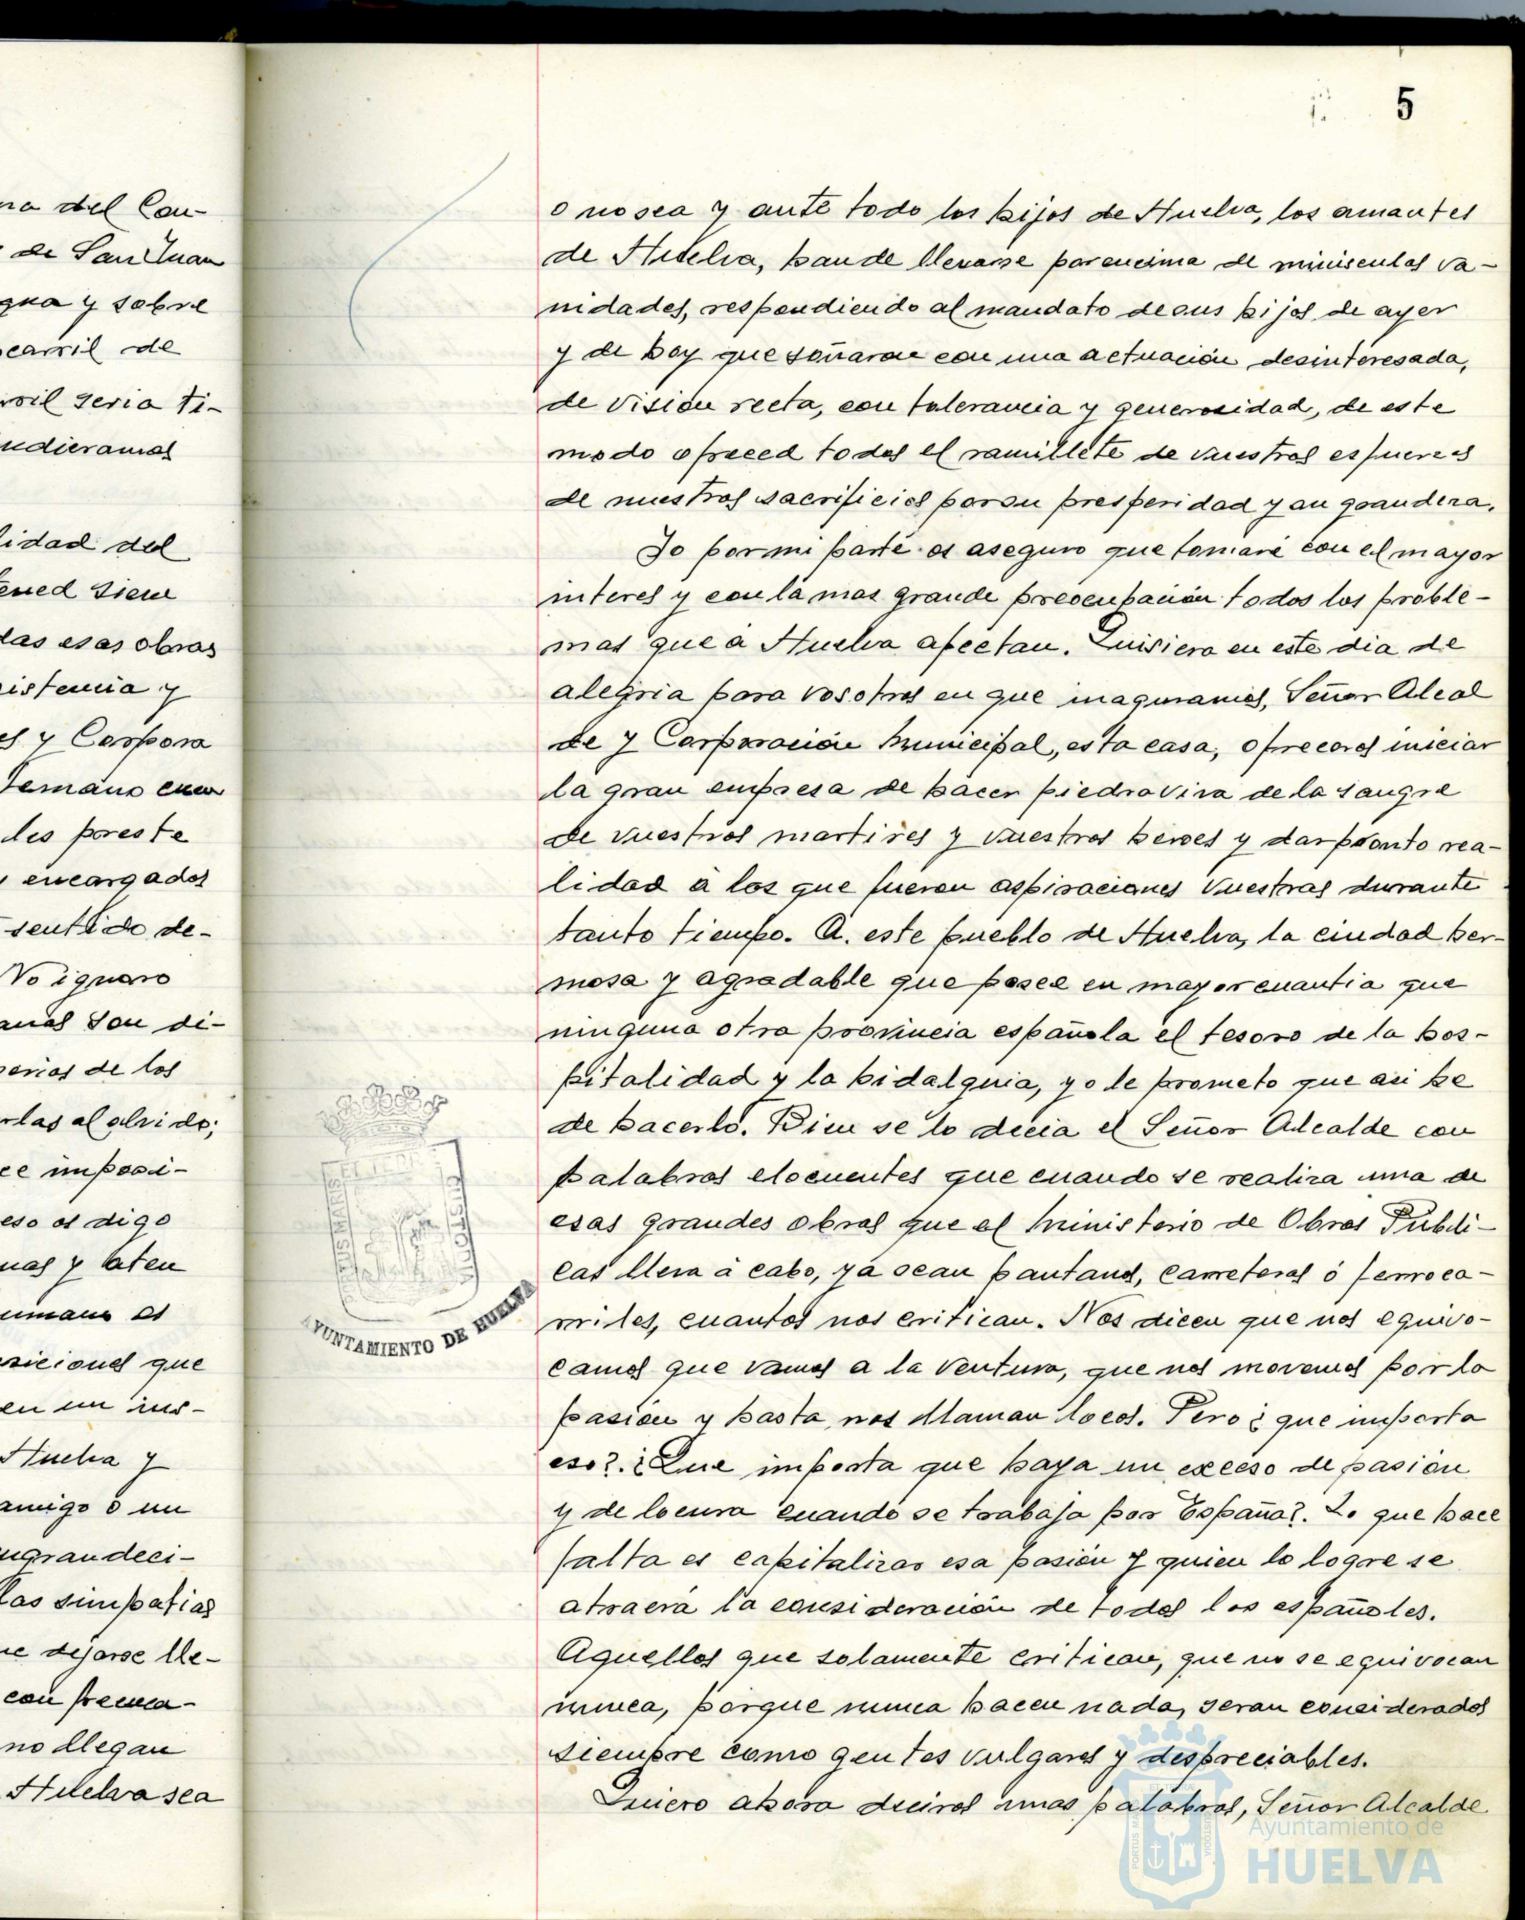 5
na del Con-
de San Juan
gua y sobre
ocarril de
rril seria ti-
udieramos
lidad del
ened siem
das esas obras
istencia y
es y Corpora
Temano
les preste
encargados
sentido de-
No ignoro
anas son di-
perios de los
rlas al olvido;
ce imposi-
eso os digo
nas y aten
umano es
siciones que
en un ins-
Huelva y
amigo o un
ngrandeci-
las simpatias
ue dejarse lle-
con frecuen-
no llegan
Huelva sea
o no sea y ante todo los hijos de Huelva, los amantes
de Huelva, han de llevarse por encima de minisculas va-
nidades, respondiendo al mandato de sus hijos de ayer
y de hoy que soñaron con una actuación desinteresada,
de vision recta, con tolerancia y generosidad, de este
modo ofreced todos el ramillete de vuestros esfuerzos
de nuestros sacrificios por su prosperidad y su grandeza.
Yo por mi parte os aseguro que tomaré con el mayor
interes y con la mas grande preocupación todos los proble-
mas que á Huelva afectan. Quisiera en este dia de
alegria para vosotros en que inaguramos, Señor Alcal
de y Corporación Municipal, esta casa, ofreceros iniciar
la gran empresa de hacer piedra viva de la sangre
de vuestros martires y vuestros heroes y dar pronto rea-
lidad á los que fueron aspiraciones vuestras durante
tanto tiempo. A. este pueblo de Huelva, la ciudad her-
mosa y agradable que posee en mayor cuantia que
ninguna otra provincia española el tesoro de la hos-
pitalidad y la hidalguia, yo le prometo que asi he
de hacerlo. Bien se lo decia el Señor Alcalde con
palabras elocuentes que cuando se realiza una de
esas grandes obras que el Ministerio de Obras Públi-
cas lleva á cabo, ya sean pantanos, carreteras ó ferroca-
rriles, cuantos nos critican. Nos dicen que nos equivo-
camos que vamos a la ventura, que nos movemos por la
pasión y hasta nos llaman locos. Pero ¿que importa
eso?. ¿Que importa que haya un exceso de pasión
y de locura cuando se trabaja por España?. Lo que hace
falta es capitalizar esa pasión y quien lo logre se
atraerá la consideración de todos los españoles.
Aquellos que solamente critican, que no se equivocan
nunca, porque nunca hacen nada, seran considerados
siempre como gentes vulgares y despreciables.
Quiero ahora deciros unas palabras, Señor Alcalde
AYUNTAMIENTO DE HUELVA
Ayuntamiento de
HUELVA